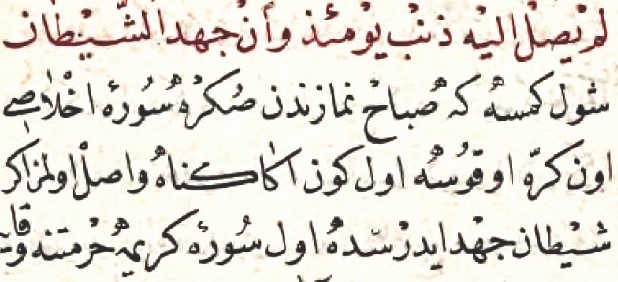 لم يصل اليه ذنب يومئذ وان جهد الشيطان
شول كمسه كه صباح نمازندن صكره سورۀ اخلاصى
اون كره اوقوسه اول كون اكا كناه واصل اولمز اكر
شيطان جهد ايدرسه ده اول سورۀ كريمه حرمتنه